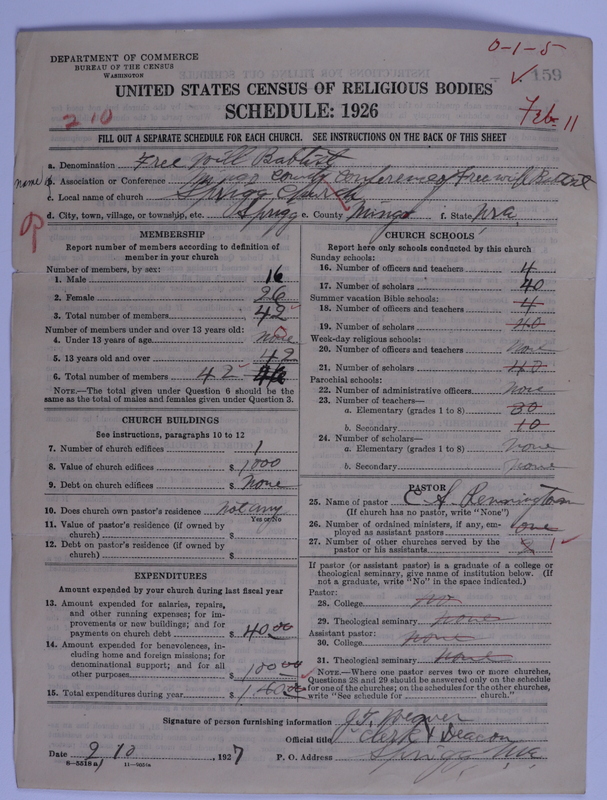 0-1-5
DEPARTMENT OF COMMERCE
BUREAU OF THE CENSUS
WASHINGTON
159
UNITED STATES CENSUS OF RELIGIOUS BODIES
SCHEDULE: 1926
210
Feb 11
FILL OUT A SEPARATE SCHEDULE FOR EACH CHURCH. SEE INSTRUCTIONS ON THE BACK OF THIS SHEET
a. Denomination Free Will Babtist
name b. Association or Conference Mingo County Conference of Free will Babtist
c. Local name of church Sprigg Church
d. City, town, village, or township, etc. Sprigg e. County Mingo f. State Wva.
MEMBERSHIP
Report number of members according to definition of member in your church
Number of members, by sex:
1. Male 16
2. Female 26
3. Total number of members 42
Number of members under and over 13 years old:
4. Under 13 years of age none
5. 13 years old and over 42
6. Total number of members 42
NOTE.—The total given under Question 6 should be the
same as the total of males and females given under Question 3.
CHURCH BUILDINGS
See instructions, paragraphs 10 to 12
7. Number of church edifices 1
8. Value of church edifices $ 1000
9. Debt on church edifices $ None
10. Does church own pastor's residence not any
Yes or No
11. Value of pastor's residence (if owned by
church) $
12. Debt on pastor's residence (if owned by
church) $
EXPENDITURES
Amount expended by your church during last fiscal year
13. Amount expended for salaries, repairs,
and other running expenses; for im-
provements or new buildings; and for
payments on church debt $ 40 00
14. Amount expended for benevolences, in-
cluding home and foreign missions; for
denominational support; and for all
other purposes 100 00
15. Total expenditures during year $ 140 00
CHURCH SCHOOLS
Report here only schools conducted by this church
Sunday schools:
16. Number of officers and teachers 4
17. Number of scholars 40
Summer vacation Bible schools:
18. Number of officers and teachers 4
19. Number of scholars 40
Week-day religious schools:
20. Number of officers and teachers None
21. Number of scholars 40
Parochial schools:
22. Number of administrative officers None
23. Number of teachers—
a. Elementary (grades 1 to 8) 30
b. Secondary 10
24. Number of scholars—
a. Elementary (grades 1 to 8) none
b. Secondary none
PASTOR
25. Name of pastor C A Pennington
(If church has no pastor, write "None")
26. Number of ordained ministers, if any, em-
ployed as assistant pastors one
27. Number of other churches served by the
pastor or his assistants 1
If pastor (or assistant pastor) is a graduate of a college or
theological seminary, give name of institution below. (If
not a graduate, write "No" in the space indicated.)
Pastor:
28. College no
29. Theological seminary none
Assistant pastor:
30. College none
31. Theological seminary none
NOTE.—Where one pastor serves two or more churches,
Questions 28 and 29 should be answered only on the schedule
for one of the churches; on the schedules for the other churches,
write "See schedule for church."
Signature of person furnishing information J. T. Weaver
Official title Clerk & Deacon
Date 2 10, 1927 P. O. Address Sprigg Wva
8—5518 a 11—9554a